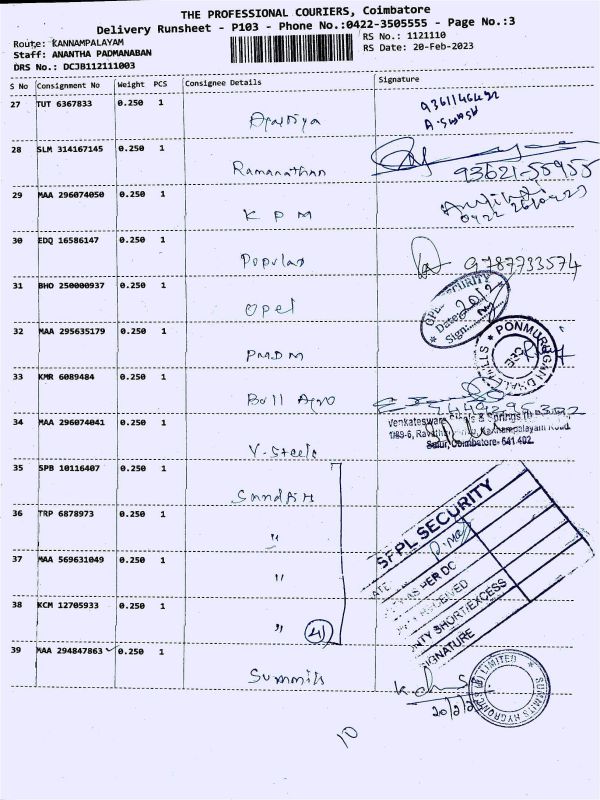 THE PROFESSIONAL COURIERS, Coimbatore
Delivery Runsheet - P103 - Phone No.:0422-3505555 - Page No.:3
Route: KANNAMPALAYAM
RS No.: 1121110
Staff: ANANTHA PADMANABAN
RS Date: 20-Feb-2023
DRS No.: DCJB112111003
S No Consignment No Weight PCS Consignee Details Signature
27 TUT 6367833 0.250 1
A.
28 SLM 314167145 0.250 1 Ramanathan 93621-55955
29 MAA 296074050 0.250 1 K P M
30 EDQ 16586147 0.250 1 Popular 9787933574
31 BHO 250000937 0.250 1 Opel
Date: 20/2
Sign:
32 MAA 295635179 0.250 1 P.M.D.M
33 KMR 6089484 0.250 1 Bull Agro
34 MAA 296074041 0.250 1 V. Steels
Venkateswara Steels & Springs
Sulur, Coimbatore- 641 402.
35 SPB 10116407 0.250 1 Sandfits
36 TRP 6878973 0.250 1 "
SFPL SECURITY
37 MAA 569631049 0.250 1 "
AS PER DC
RECEIVED
SHORT/EXCESS
SIGNATURE
38 KCM 12705933 0.250 1 " 4)
39 MAA 294847863 0.250 1 Summits
20/2/23
10